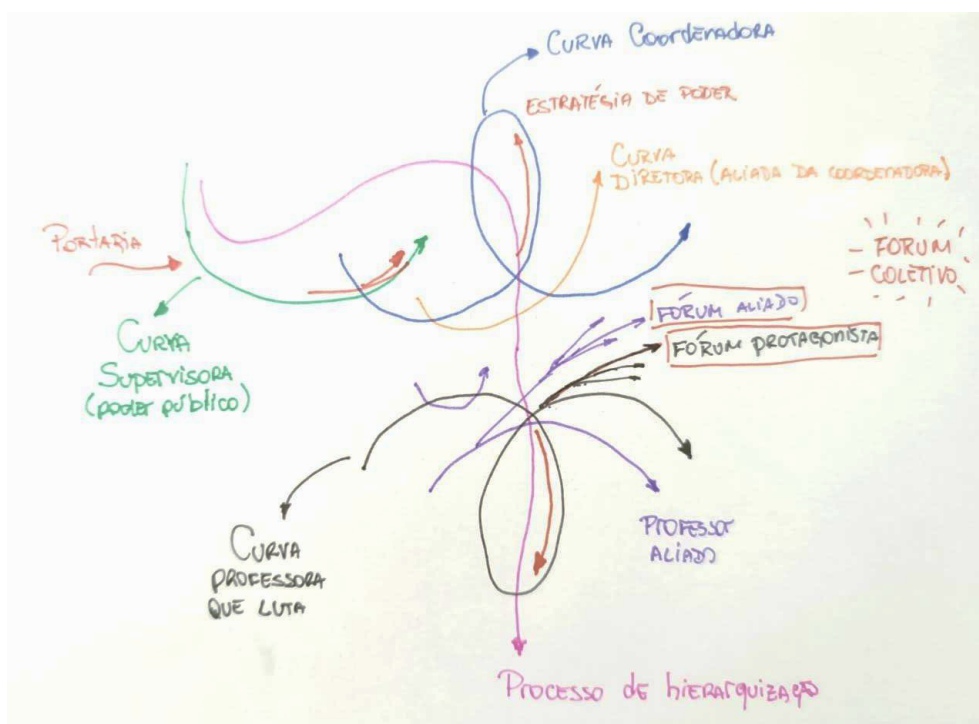 CURVA COORDENADORA
ESTRATÉGIA DE PODER
CURVA
DIRETORA (ALIADA DA COORDENADORA)
PORTARIA
FÓRUM
COLETIVO
FÓRUM ALIADO
FÓRUM PROTAGONISTA
CURVA
SUPERVISORA
(PODER PÚBLICO)
PROFESSOR
ALIADO
CURVA
PROFESSORA
QUE LUTA
PROCESSO DE HIERARQUIZAÇÃO